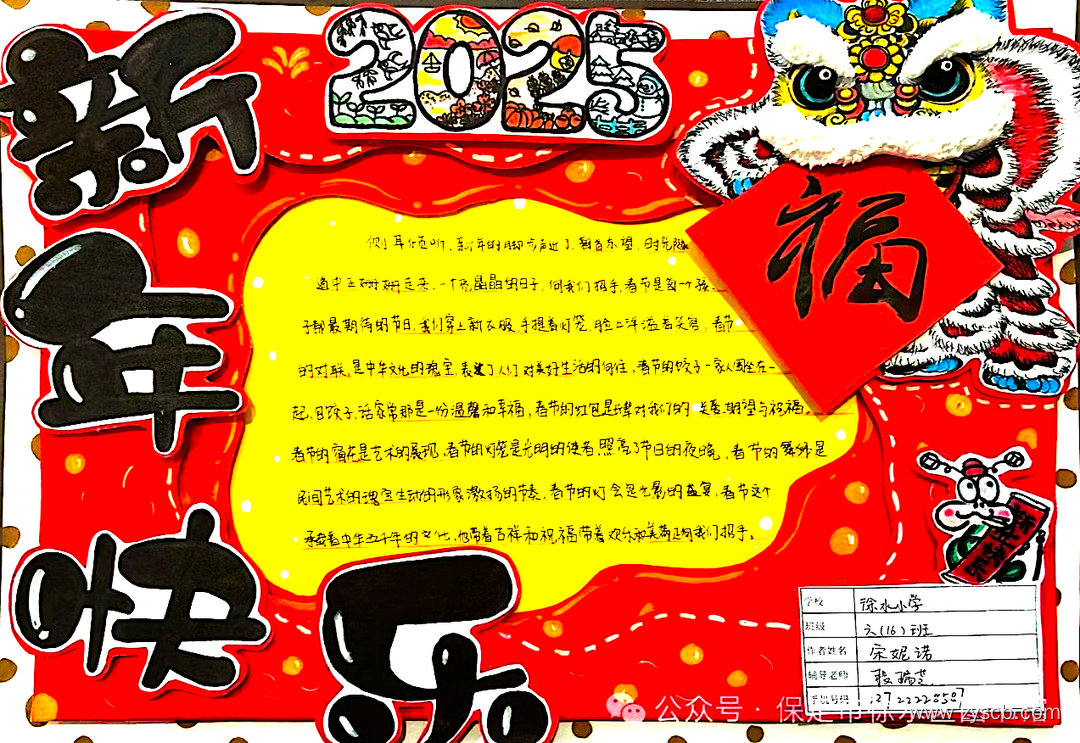 2025
新年快乐
福
侧耳倾听,新年的脚步声近了,翘首东望,时光隧
道中正姗姗走来,一个亮晶晶的日子,向我们招手,春节是每一个孩
子都最期待的节日,我们穿上新衣服,手提着灯笼,脸上洋溢着笑容,春节
的对联,是中华文化的瑰宝,表达了人们对美好生活的向往,春节的饺子一家人围坐在一
起,包饺子,话家常那是一份温馨和幸福,春节的红包是长辈对我们的关爱、期望与祝福。
春节的窗花是艺术的展现,春节的灯笼是光明的使者,照亮了节日的夜晚,春节的舞狮是
民间艺术的瑰宝生动的形象激扬的节奏,春节的灯会是光影的盛宴,春节这个
承载着中华五千年的文化,他带着吉祥和祝福带着欢乐和美满正向我们招手。
学校 徐水小学
班级 六(16)班
作者姓名 宋妮诺
辅导老师
手机号码
公众号·保定市徐水
www.zyscb.com